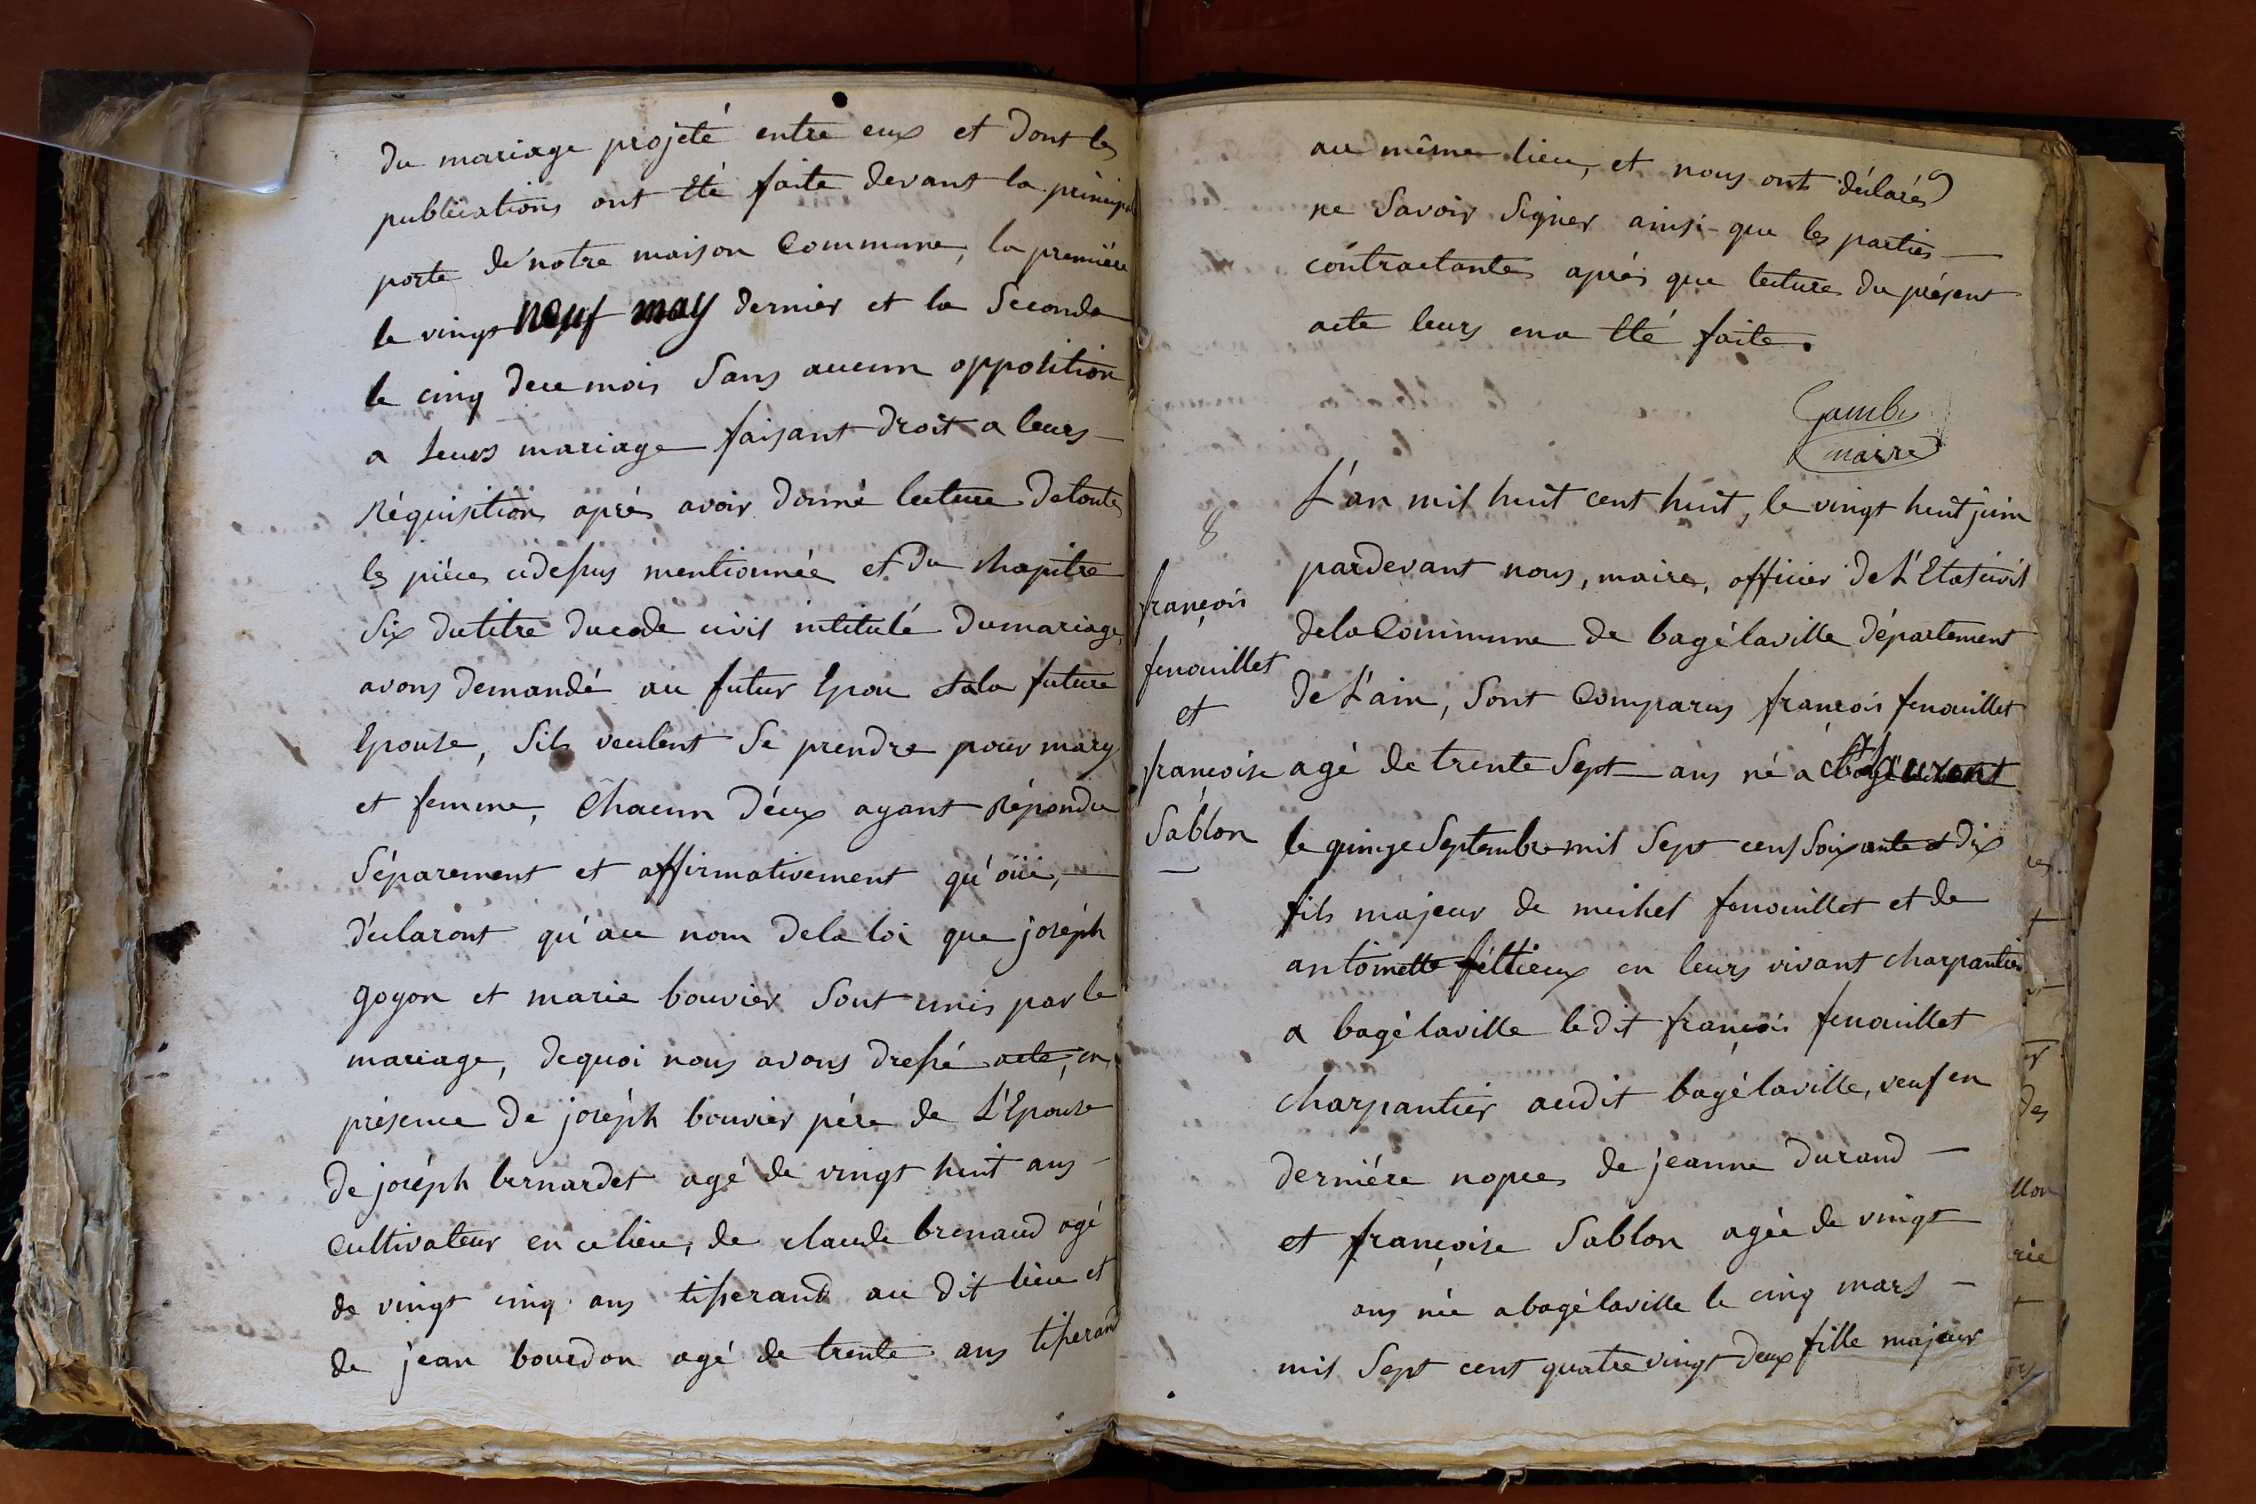 du mariage projeté entre eux et dont les
publications ont été faite devant la principale
porte de notre maison Commune, la premiére
le vingt neuf may dernier et la Seconde
le cinq du mois Sans aucun opposition
a leurs mariage faisant droit a leurs
Réquisition aprés avoir donné lecture detoutes
les piéces cidessus mentionnée et du chapitre
Six dutitre ducode civil intitulé dumariage,
avons demandé au futur Epou etala future
Epouse, Sils veulent Se prendre pour mary
et femme, Chacun d'éux ayant Répondu
Séparement et affirmativement qu'oüi,
déclaront qu'au nom dela loi que joséph
goyon et marie bouvier Sont unis par le
mariage, dequoi nous avons dressé acte, en
présence de joséph bouvier pére de L'Epouse
de joséph bernardet agé de vingt huit ans
Cultivateur en ce lieu, de claude brenaud agé
de vingt cinq ans tisserand au dit lieu et
de jean bourdon agé de trente ans tisserand
au même lieu, et nous ont déclarés
ne Savoir Signer ainsi que les parties
contractantes aprés que lecture du présent
acte leurs ena été faite.
maire
8
françois
fenouillet
et
françoise
Sablon
L'an mil huit cent huit, le vingt huit juin
pardevant nous, maire, officier de L'Etat civil
dela Commune de bagélaville département
de L'ain, Sont Comparus françois fenouillet
agé de trente Sept ans né a
le quinze Septembre mil Sept cent Soixante et dix
fils majeur de michel fenouillet et de
antoinette féltieux en leurs vivant charpantier
a bagélaville ledit françois fenouillet
charpantier audit bagélaville, veuf en
derniére nopces de jeanne durand
et françoise Sablon agée de vingt
ans née abagélaville le cinq mars
mil Sept cent quatre vingt deux fille majeur